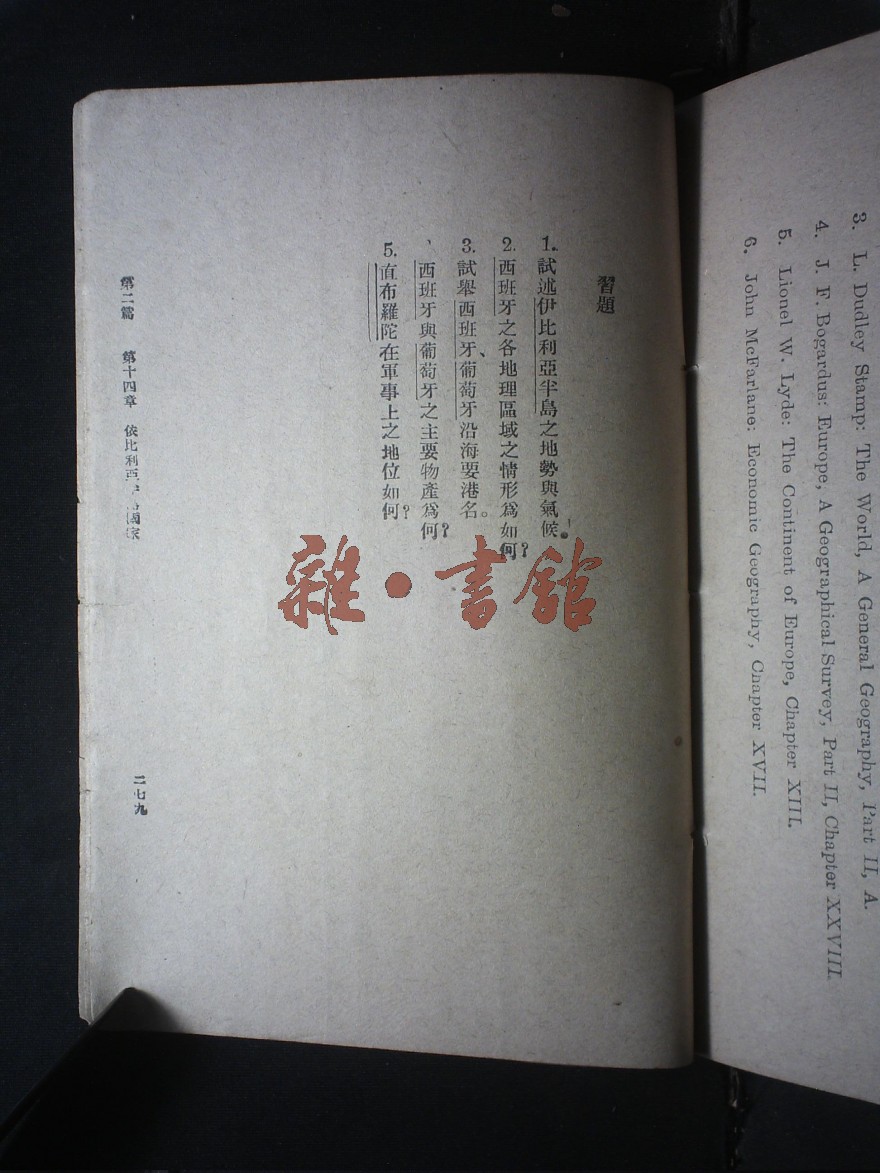 3. L. Dudley Stamp: The World, A General Geography, Part II, A.
4. J. F. Bogardus: Europe, A Geographical Survey, Part II, Chapter XXVIII.
5. Lionel W. Lyde: The Continent of Europe, Chapter XIII.
6. John McFarlane: Economic Geography, Chapter XVII.
習題
1. 試述伊比利亞半島之地勢與氣候。
2. 西班牙之各地理區域之情形爲如何？
3. 試舉西班牙、葡萄牙沿海要港名。
西班牙與葡萄牙之主要物產爲何？
5. 直布羅陀在軍事上之地位如何？
第二篇 第十四章 依比利亞
二七九
雜·書館